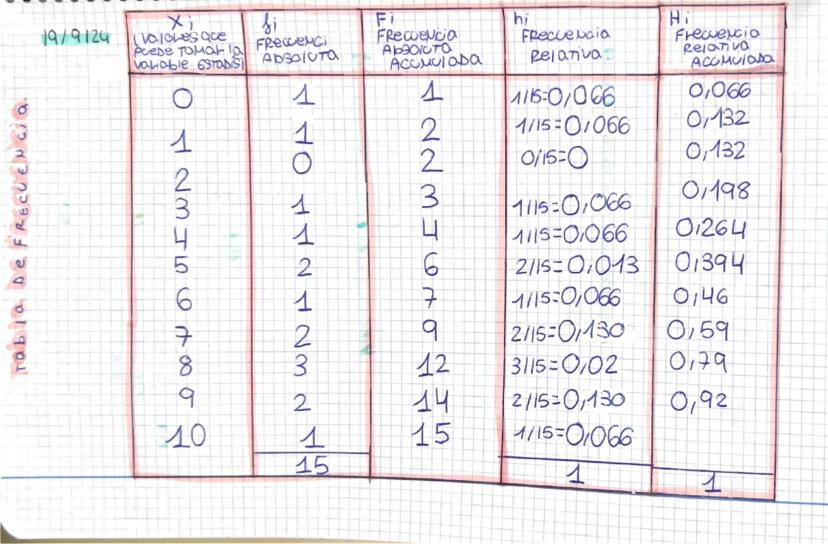 19/9/24
Tabla De FRecuencia
Xi
(valores que
puede tomar la
variable estadis)
fi
FRecuenci
Absoluta
Fi
FRecuencia
Absoluta
Acumulada
hi
FRecuencia
Relativa
Hi
FRecuencia
Relativa
Acumulada
0 1 1 1/15=0,066 0,066
1 1 2 1/15=0,066 0,132
2 0 2 0/15=0 0,132
3 1 3 1/15=0,066 0,198
4 1 4 1/15=0,066 0,264
5 2 6 2/15=0,013 0,394
6 1 7 1/15=0,066 0,46
7 2 9 2/15=0,130 0,59
8 3 12 3/15=0,02 0,79
9 2 14 2/15=0,130 0,92
10 1 15 1/15=0,066
15 1 1